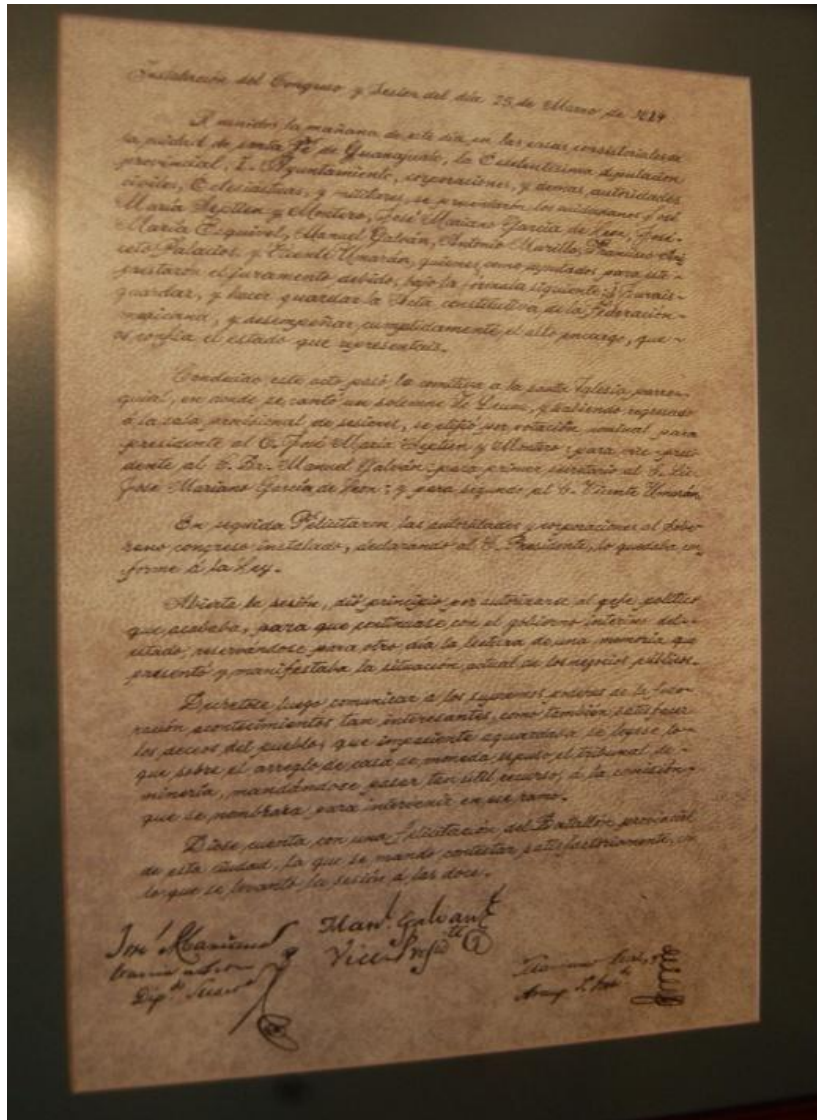 Instalación del Congreso y Sesion del día 25 de Marzo de 1824
Reunidos la mañana de este dia, en las casas consistoriales de
la ciudad de santa Fé de Guanajuato, la Exselentisima diputacion
provincial, I. Ayuntamiento, corporaciones, y demas autoridades
civiles, Eclesiasticas, y militares, se presentaron los ciudadanos José
María Septien y Montero, José Mariano García de Leon, José
María Esquivel, Manuel Galván, Antonio Murillo, Francisco Ani-
ceto Palacios, y Vicente Umarán, quienes como diputados para este
prestaron el juramento debido, bajo la formula siguiente: ¿Jurais
guardar, y hacer guardar la Acta constitutiva de la Federación
mexicana, y desempeñar cumplidamente el alto encargo, que
os confia el estado que representais.
Concluido este acto pasó la comitiva a la santa Iglesia parro-
quial, en donde se cantó un solemne Te Deum, y habiendo regresado
á la sala provisional de sesiones, se eligió por votación nominal para
presidente al C. José María Septien y Montero; para vice-presi-
dente al C. Dr. Manuel Galván; para primer secretario al C. Lic.
José Mariano García de Leon; y para segundo al C. Vicente Umarán.
En seguida Felicitaron las autoridades y corporaciones al Sobe-
rano congreso instalado, declarando el C. Presidente, lo quedaba con-
forme á la Ley.
Abierta la sesión, dió principio por autorizarse al gefe politico
que acababa, para que continuase con el gobierno interino del
estado, reservándose para otro dia la lectura de una memoria que
presentó y manifestaba la situación actual de los negocios públicos.
Decretose luego comunicar a los supremos poderes de la fede-
ración acontecimientos tan interesantes, como también satisfacer
los deceos del pueblo, que impaciente aguardaba se leyese lo
que sobre el arreglo de casa de moneda espuso el tribunal de
minería, mandándose pasar tan util recurso, á la comisión
que se nombrara para intervenir en ese ramo.
Diose cuenta con una felicitación del Batallón provincial
de esta ciudad, la que se mando contestar satisfactoriamente, con
lo que se levantó la sesión á las doce.
José Mariano
Dip.
Man. Galvan
Vice